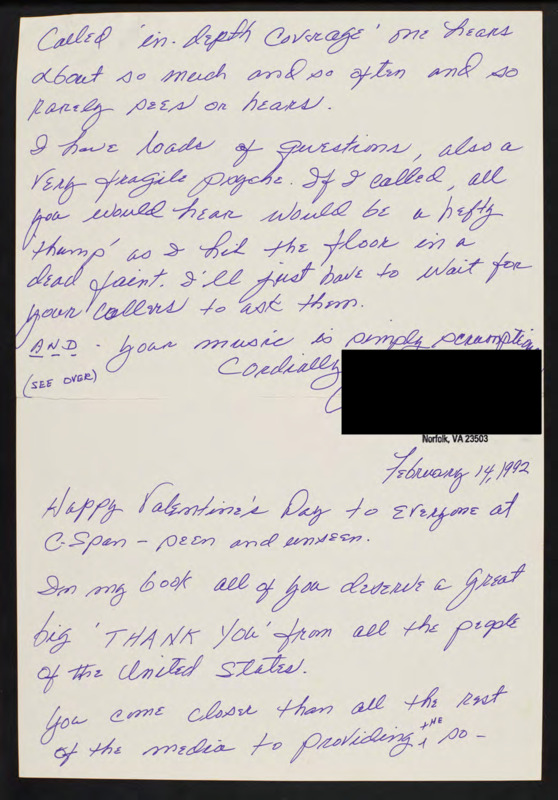 Called 'in-depth coverage' one hears
about so much and so often and so
rarely sees or hears.
I have loads of questions, also a
very fragile psyche. If I called, all
you would hear would be a hefty
'thump' as I hit the floor in a
dead faint. I'll just have to wait for
your callers to ask them.
AND - your music is simply
Cordially
(SEE OVER)
Norfolk, VA 23503
February 14, 1992
Happy Valentine's Day to everyone at
C-Span - seen and unseen.
In my book all of you deserve a great
big 'THANK YOU' from all the people
of the United States.
You come closer than all the rest
of the media to providing the so-